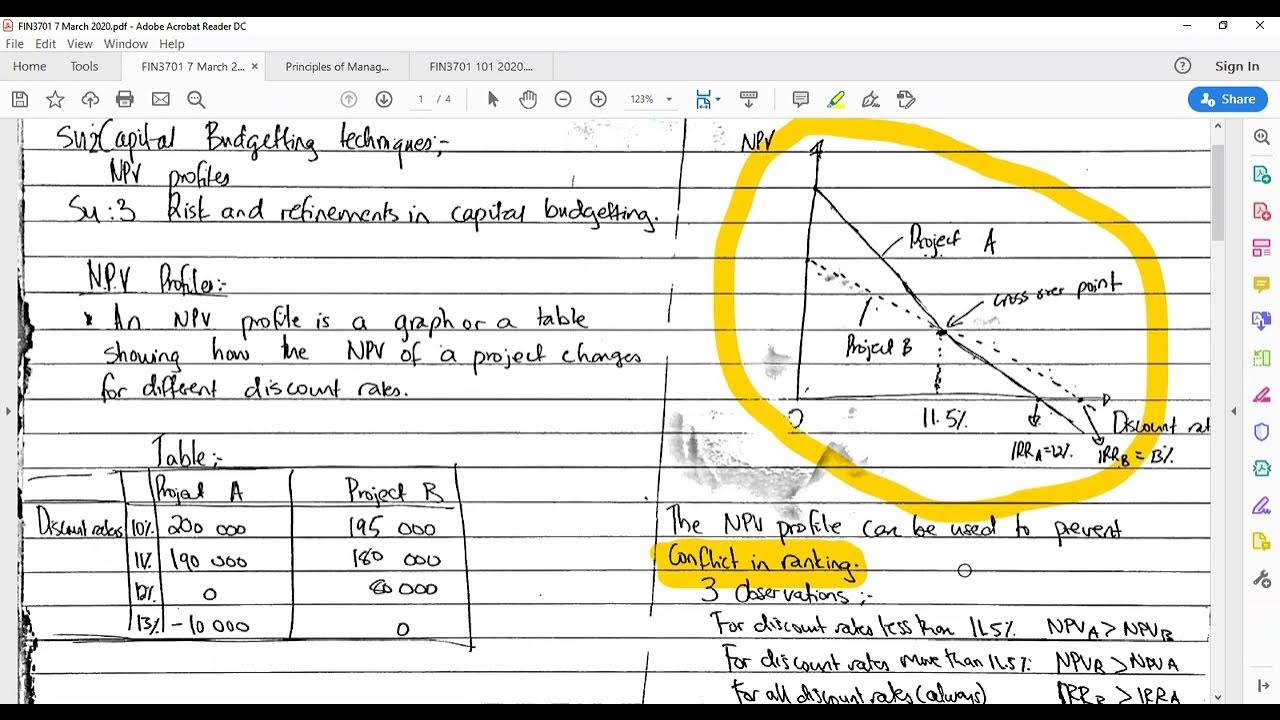 FIN3701 7 March 2020.pdf - Adobe Acrobat Reader DC
File Edit View Window Help
Home Tools FIN3701 7 March 2... × Principles of Manag... FIN3701 101 2020.... Sign In
1 / 4 123% Share
Su:2 Capital Budgetting techniques;-
NPV profiles
Su:3 Risk and refinements in capital budgetting.
N.P.V Profiles:-
* An NPV profile is a graph or a table
showing how the NPV of a project changes
for different discount rates.
Table;-
Project A Project B
Discount rates 10% 200 000 195 000
11% 190 000 180 000
12% 0 80 000
13% -10 000 0
NPV
Project A
cross over point
Project B
0 11.5% Discount rat
IRR A = 12% IRR B = 13%
The NPV profile can be used to prevent
Conflict in ranking.
3 observations;-
For discount rates less than 11.5% NPV A > NPV B
For discount rates more than 11.5% NPV B > NPV A
For all discount rates (always) IRR B > IRR A